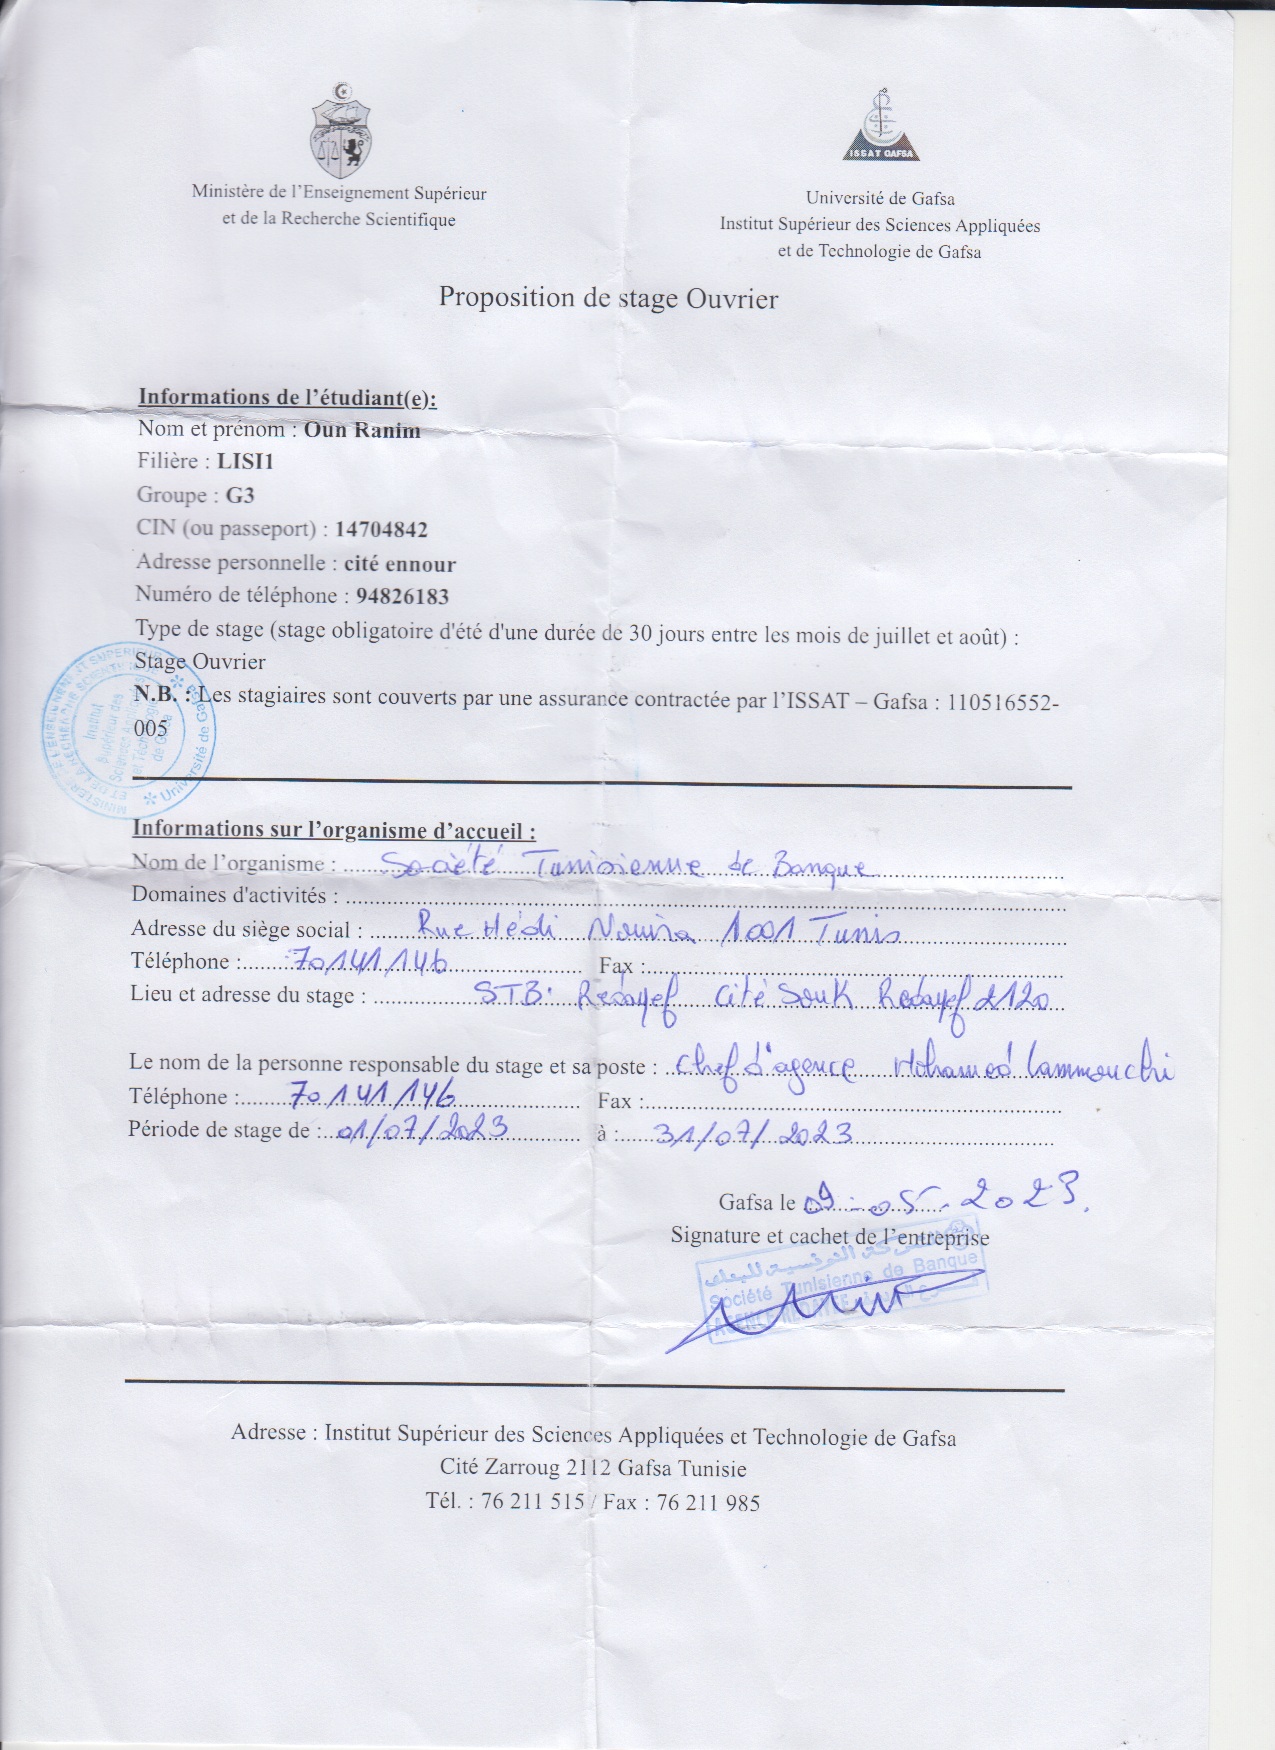 ISSAT GAFSA
Ministère de l'Enseignement Supérieur
et de la Recherche Scientifique
Université de Gafsa
Institut Supérieur des Sciences Appliquées
et de Technologie de Gafsa
Proposition de stage Ouvrier
Informations de l'étudiant(e):
Nom et prénom : Oun Ranim
Filière : LISI1
Groupe : G3
CIN (ou passeport) : 14704842
Adresse personnelle : cité ennour
Numéro de téléphone : 94826183
Type de stage (stage obligatoire d'été d'une durée de 30 jours entre les mois de juillet et août) :
Stage Ouvrier
N.B. : Les stagiaires sont couverts par une assurance contractée par l'ISSAT – Gafsa : 110516552-
005
Institut
Supérieur des
Sciences Appliquées
et Technologie
de Gafsa
Université de Gafsa
Informations sur l'organisme d'accueil :
Nom de l'organisme : Société Tunisienne de Banque
Domaines d'activités :
Adresse du siège social : Rue Hédi Nouira 1001 Tunis
Téléphone : 70 141 146 Fax :
Lieu et adresse du stage : STB Redayef cité Souk Redayef 2120
Le nom de la personne responsable du stage et sa poste : Chef d'agence Mohamed Lammouchi
Téléphone : 70 141 146 Fax :
Période de stage de : 01/07/2023 à : 31/07/2023
Gafsa le 09-05-2023
Signature et cachet de l'entreprise
الشركة التونسية للبنك
Société Tunisienne de Banque
Adresse : Institut Supérieur des Sciences Appliquées et Technologie de Gafsa
Cité Zarroug 2112 Gafsa Tunisie
Tél. : 76 211 515 / Fax : 76 211 985